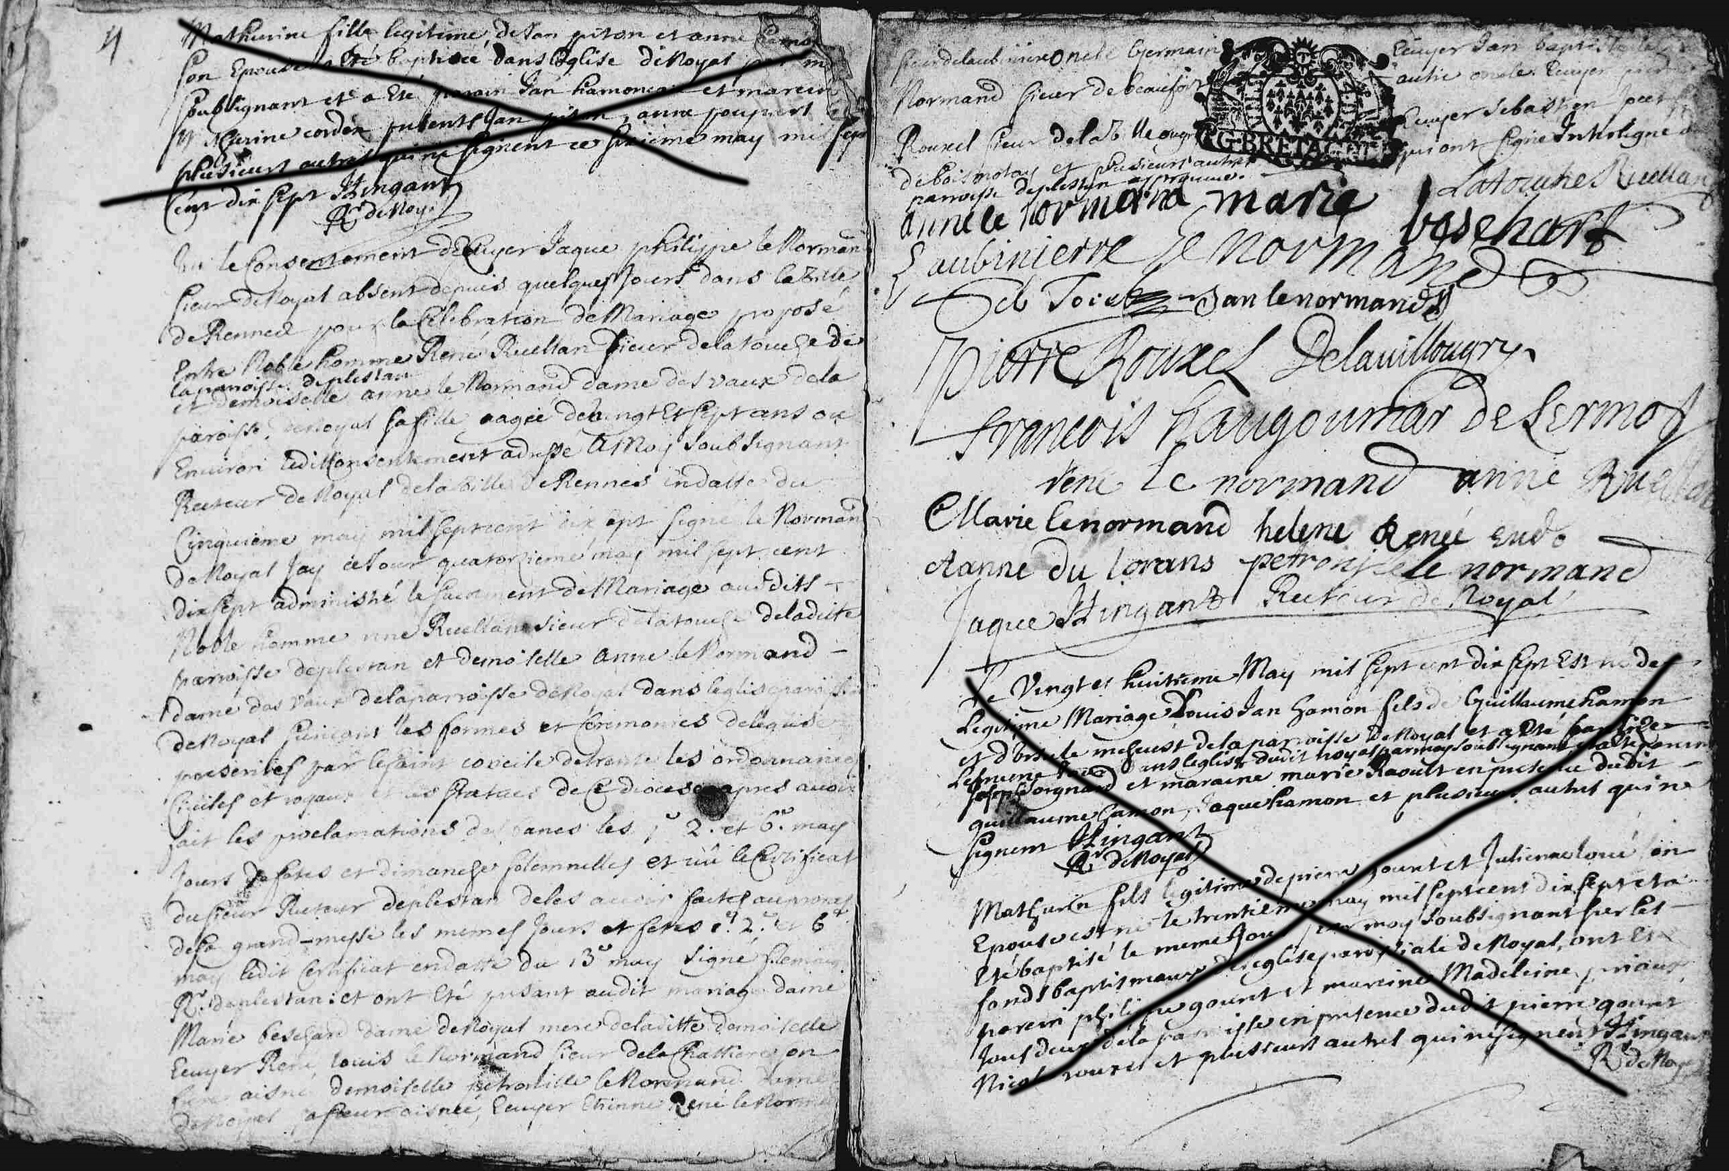 4
Matherine fille legitime de Jan piton et anne hamon
son Epouse a Eté baptisée dans leglise de Noyal par m
soubsignant et a Eté parain Jan hamon et marein
Matherine corder presents Jan piton, anne poupart
plusieurs autres qui ne signent ce seixieme may mil sept
Cent dix sept Hingant
Rr de Noyal
Vu le Consentement d'Ecuyer Jaque philippe le Norman
sieur de Noyal absent depuis quelques jours dans la ville
de Rennes pour la Célébration de Mariage proposé
Entre Noble homme René Ruellan sieur de la touche de
la paroisse de plestan
et demoiselle anne le Normand dame des vaux de la
paroisse de Noyal sa fille aagée de vingt et sept ans ou
Environ ledit Consentement adressé a Moy soubsignant
Recteur de Noyal de la ville de Rennes en datte du
Cinquième may mil sept cent dix sept signé le Norman
de Noyal Jay ce Jour quatorzieme may mil sept cent
dix sept administré le sacrement de Mariage ausdits
Noble homme rene Ruellan sieur de la touche de ladite
paroisse de plestan et demoiselle anne le Normand
dame des vaux de la paroisse de Noyal dans leglise paroiss
de Noyal suivant les formes et Ceremonies de leglise
prescrites par le saint concile de trente les ordonnances
Civiles et royaux et les statuts de Ce diocese apres avoir
fait les proclamations des bancs les 1r 2e et 6e may
Jours de fetes et dimanche solemnelles et vû le Certificat
du sieur Recteur de plestan de les avoir faites au prone
de la grand-messe les memes Jours et fetes 1r 2e et 6e
may ledit Certificat en datte du 13e may signé
Rr de plestan: et ont Eté present audit mariage dame
Marie beschart dame de Noyal mere de ladite demoiselle
Ecuyer René louis le Normand sieur de la Chattiere son
frere aisné demoiselle petronille le Normand dame
de Noyal sa soeur aisnée, Ecuyer Etienne René le Norm
sieur de laubinière oncle Germain
Ecuyer Jan baptiste le
Normand sieur de beaufort
autre oncle Ecuyer
Rouxel sieur de la Ville ougry
Ecuyer Sebastien
de boismotay et plusieurs autres
qui ont signé Interligne
paroisse de plestan approuvé.
G. BRETAGNE
Latouche Ruellan
anne le normand marie boschart
Laubinierre le normand
Jan le normand
pierre Rouxel Delavillougry
francois haugoumar de Lermo
rené le normand anne Ruella
Marie lenormand helene Renée eudo
Janne du lorans petronille le normand
Jaque Hingant Recteur de Noyal
Le Vingt et huitieme May mil sept cent dix sept Est né de
Legitime Mariage Louis Jan hamon fils de Guillaume hamon
et d'ursule meheust de la paroisse de Noyal et a Eté baptisé
le meme jour dans leglise dudit noyal par moy soubsignant
Joseph soignard et maraine marie Raoult en presence dudit
guillaume hamon, Jaque hamon et plusieurs autres qui ne
signent Hingant
Rr de Noyal
Mathurin fils legitime de pierre gouret et Julienne loué son
Epouse est né le trentieme may mil sept cent dix sept et a
Eté baptisé le meme Jour par moy soubsignant sur les
fonds baptismaux de leglise paroissiale de Noyal, ont Eté
parein philippe gouret et mareine Madeleine
tous deux de la paroisse en presence dudit pierre gouret
Nicol rouxel et plusieurs autres qui ne signent Hingant
Rr de Noyal